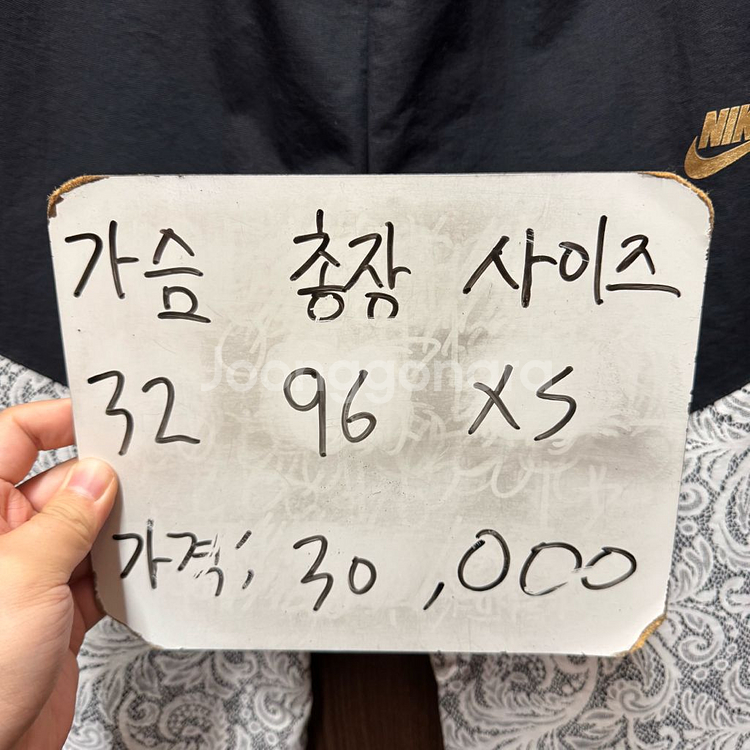 NIK
가슴 총장 사이즈
Joonggonara
32 96 XS
가격; 30,000